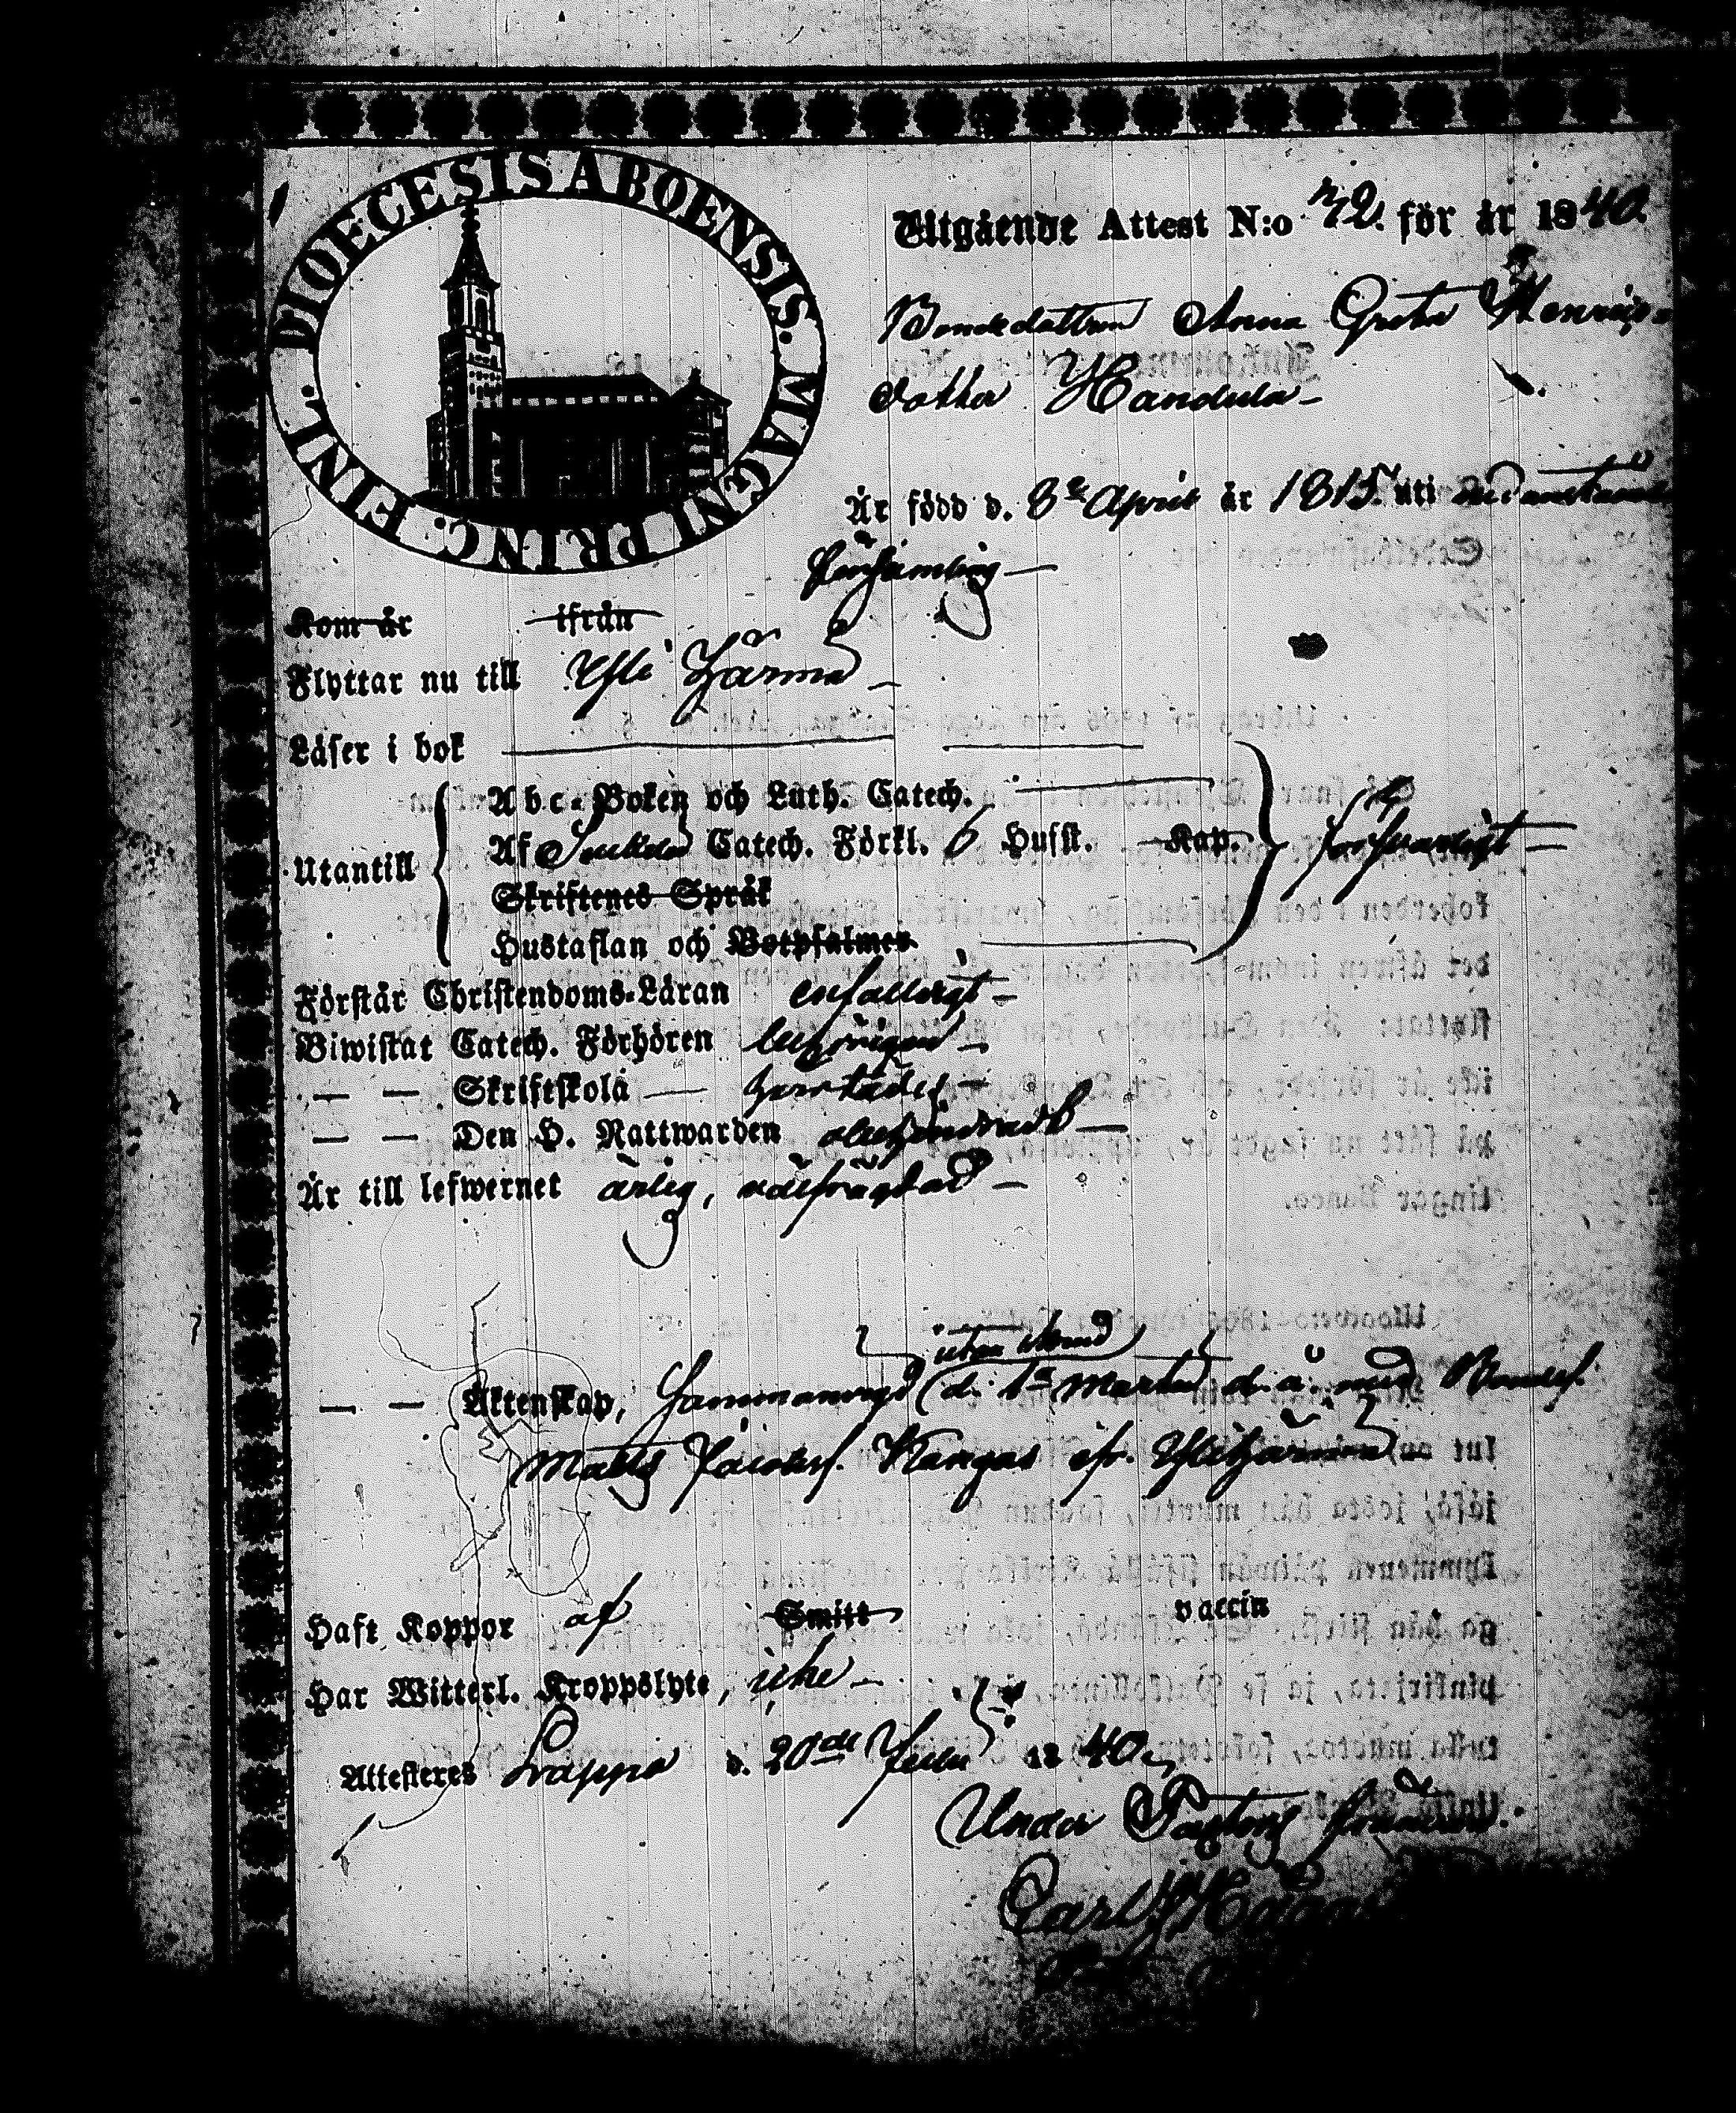 DIOECESIS ABOENSIS. MAGNI PRINC. FINL.
Utgående Attest N:o 72. för år 1840.
Bondedottren Anna Greta Henrics-
dotter Handula -
Är född d. 8de April år 1815. uti
församling -
Kom år ifrån
Flyttar nu till Ylihärmä -
Läser i bok
Utantill
Abc-Boken och Luth. Catech.
Af Catech. Förkl. 6 Husst. Kap.
försvarligt -
Skriftenes Språk
Hustaflan och Botpsalmer
Förstår Christendoms-Läran enfaldigt -
Biwistat Catech. Förhören behörigen -
— — Skriftskola —
— — Den H. Nattwarden obehindradt -
Är till lefwernet ärlig, välfrägdad -
utan
— — Äktenskap, Sammanvigd d. 1sta d. å. med Bondes.
Matts Jacobss. Kangas ifr. Ylihärmä
Haft Koppor af Smitt vaccin
Har Witterl. Kroppslyte, icke -
Attesteras Lappo d. 20de Julii 1840
Under Pastors frånvaro.
Carl